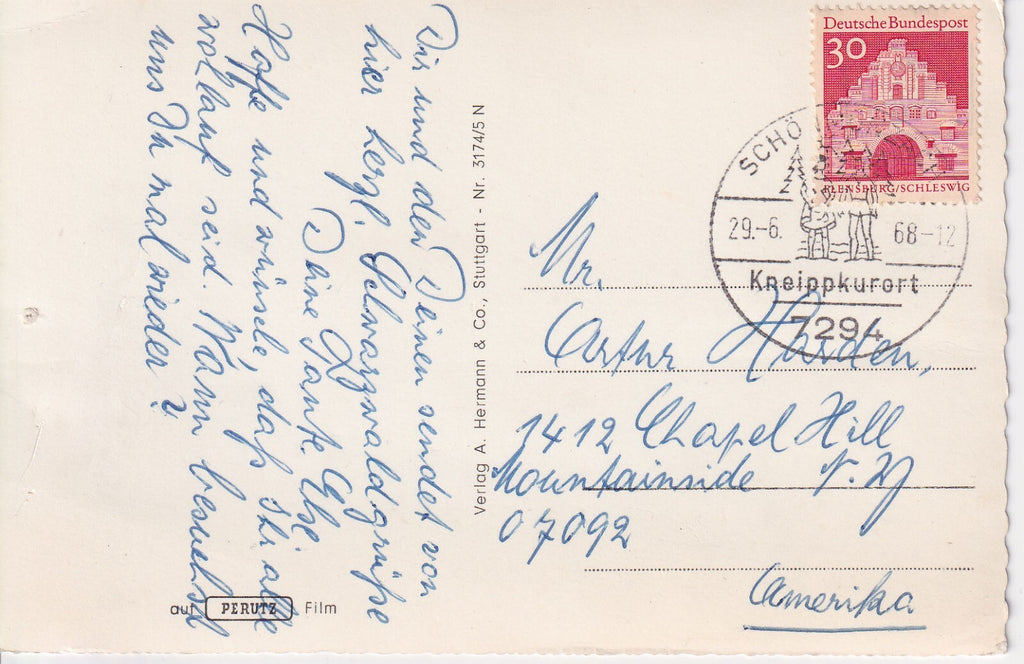 Dir und den Deinen sendet von
hier herzl. Schwarzwaldgrüße
Deine Tante Else
Hoffe und wünsche, daß Ihr alle
wohlauf seid. Wann besuchst
uns Du mal wieder?
auf PERUTZ Film
Verlag A. Hermann & Co., Stuttgart - Nr. 3174/5 N
Deutsche Bundespost
30
FLENSBURG/SCHLESWIG
SCHÖ
29.-6. 68-12
Kneippkurort
7294
Mr.
Artur Harden,
1412 Chapel Hill
Mountainside N. Y
07092
Amerika